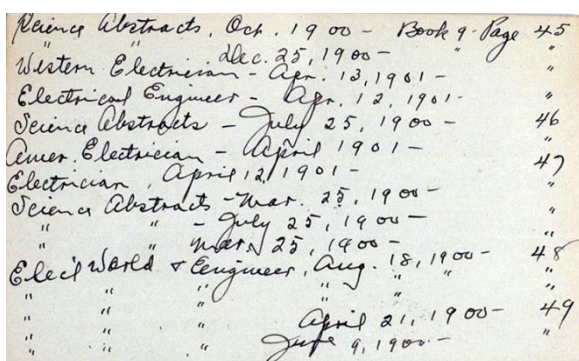 Science Abstracts, Oct. 1900 - Book 9 - Page 45
" " Dec. 25, 1900 - " "
Western Electrician - Apr. 13, 1901 - "
Electrical Engineer - Apr. 12, 1901 - "
Science Abstracts - July 25, 1900 - 46
Amer. Electrician - April 1901 - "
Electrician, April 12, 1901 - 47
Science Abstracts - Mar. 25, 1900 - "
" " - July 25, 1900 - "
" " Mar. 25, 1900 - "
Elec'l World & Engineer, Aug. 18, 1900 - 48
" " " " " " "
" " " April 21, 1900 - 49
" " " June 9, 1900 - "